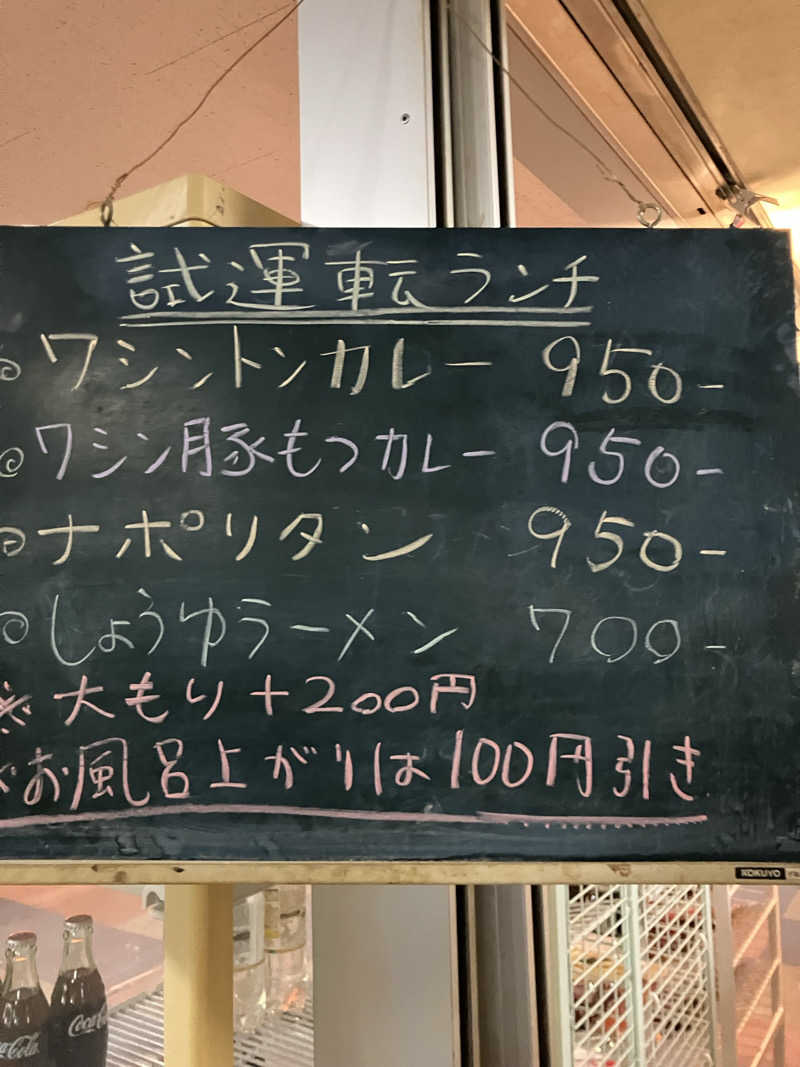 試運転ランチ
◎ワシントンカレー 950-
◎ワシン豚もつカレー 950-
◎ナポリタン 950-
◎しょうゆラーメン 700-
※大もり+200円
※お風呂上がりは100円引き
KOKUYO
Coca-Cola
Coca-Cola